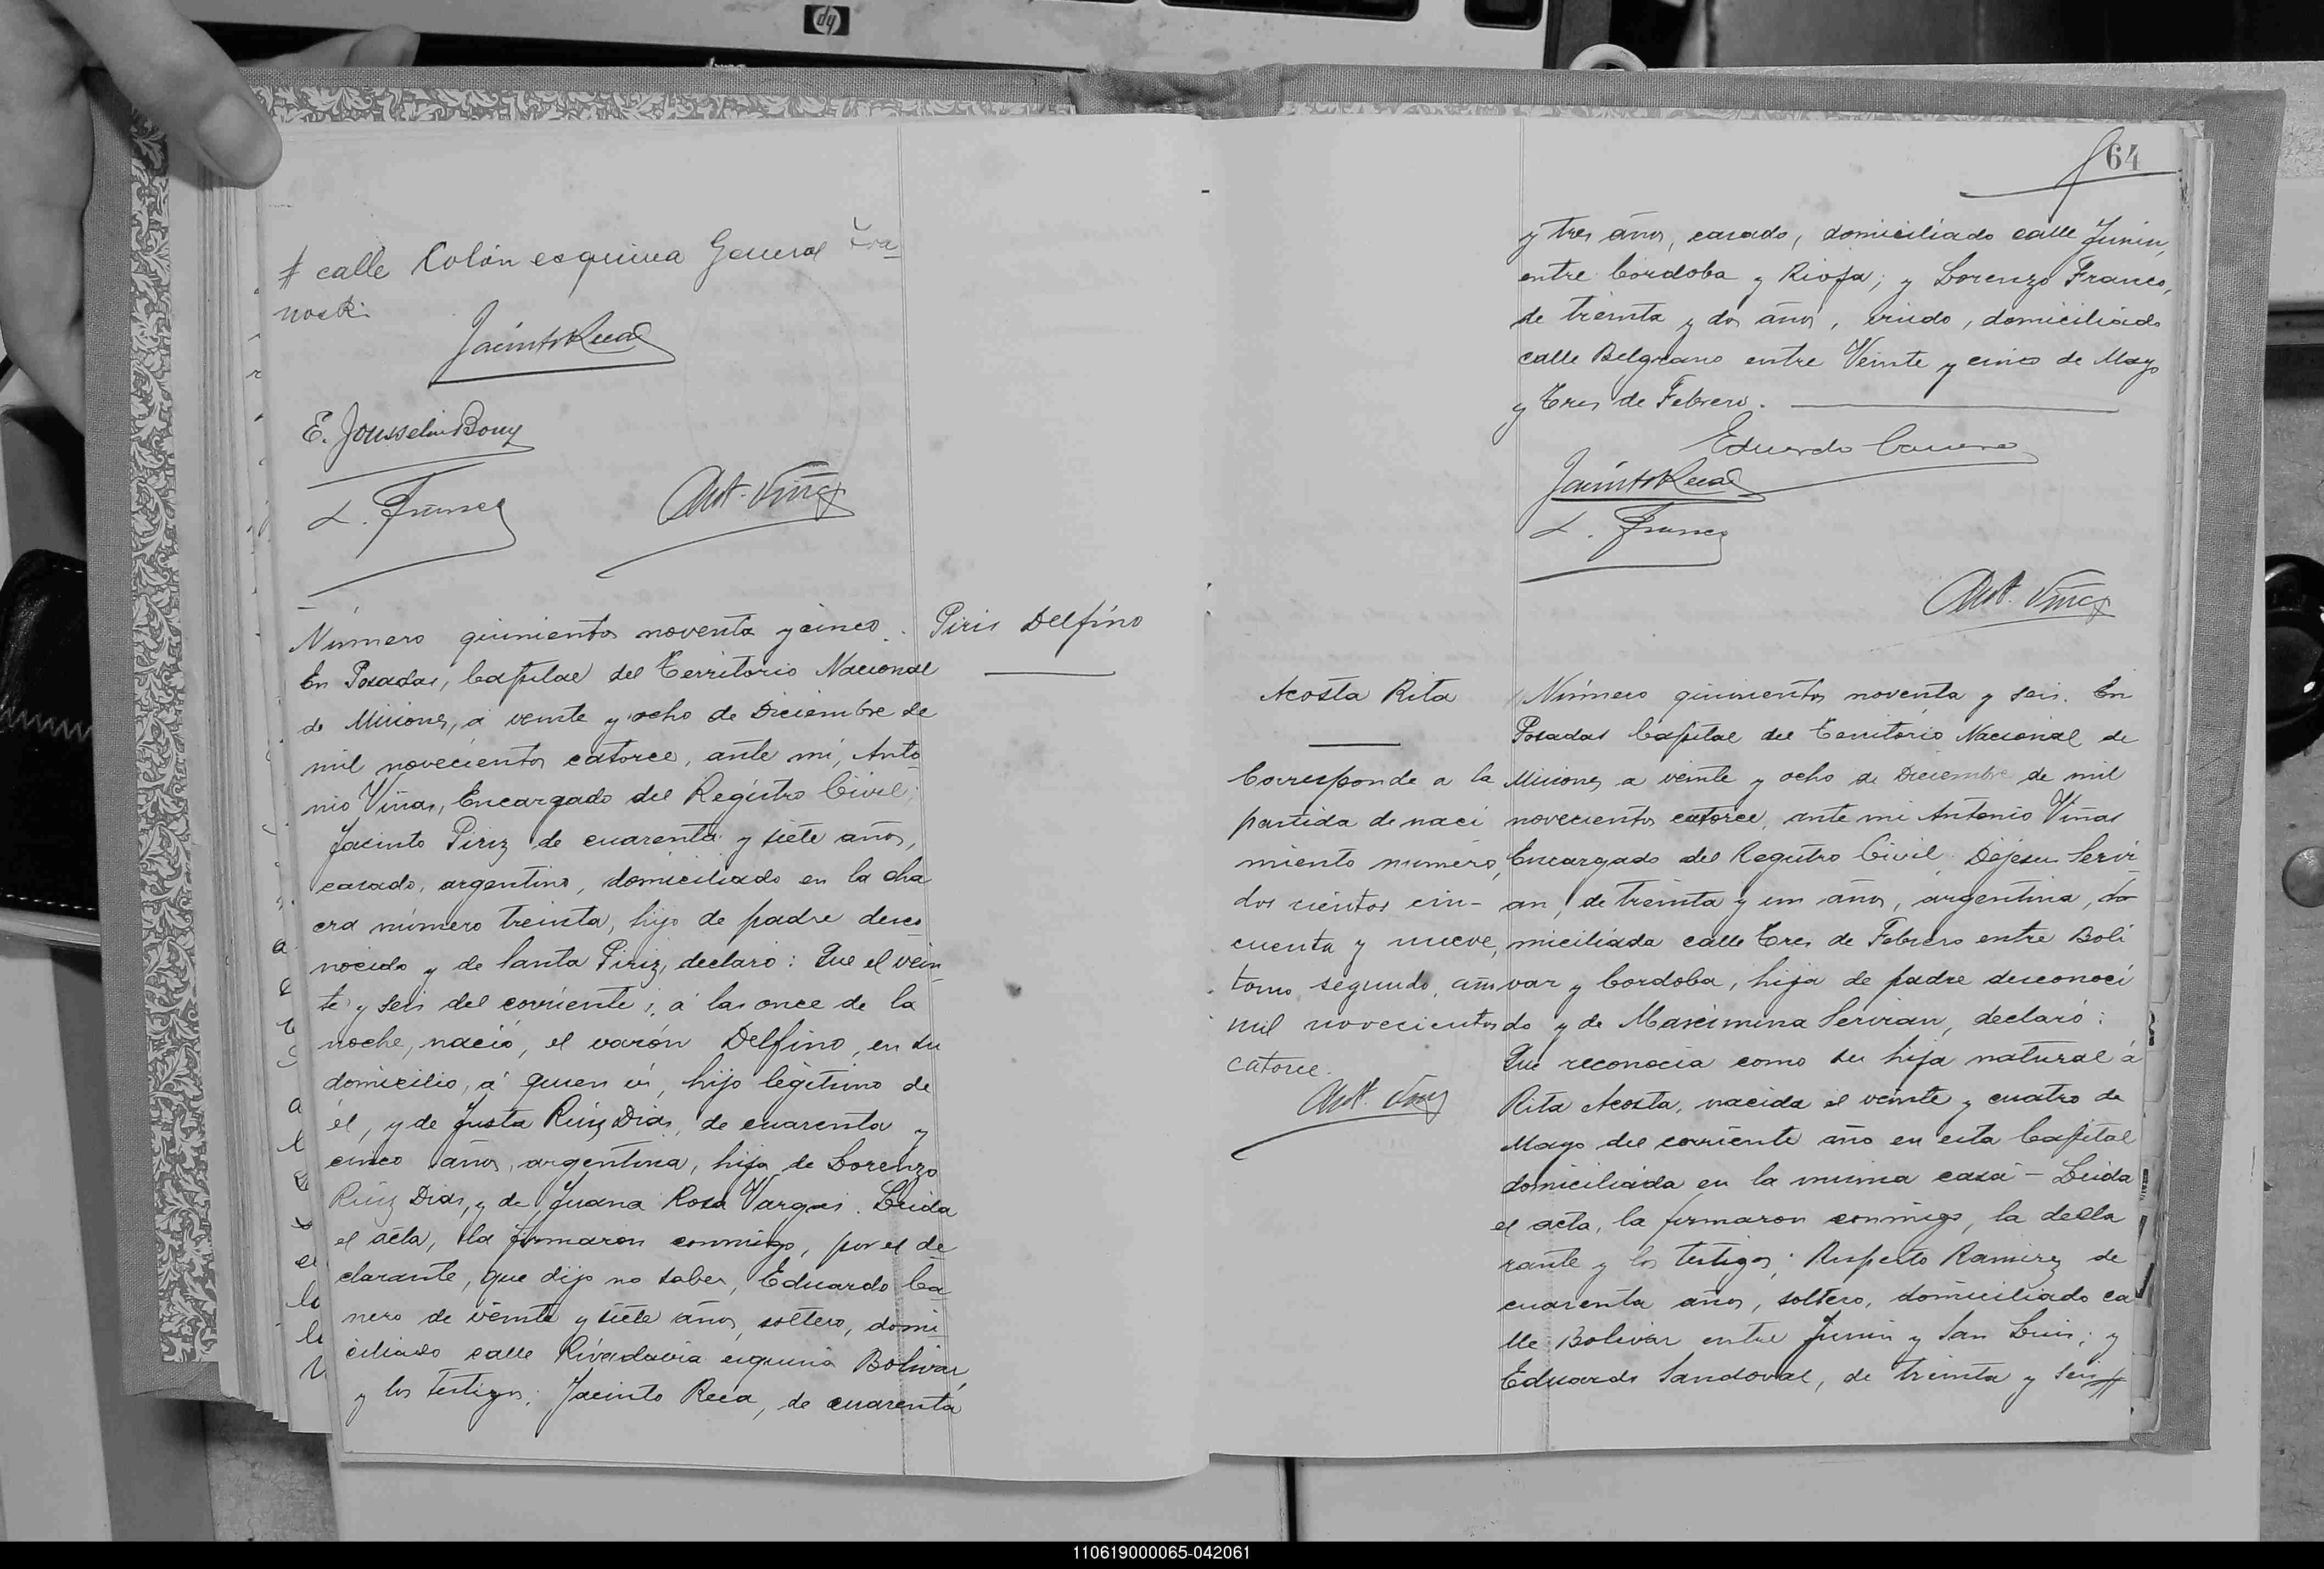 hp
# calle Colón esquina General Fra-
noski
Jacinto Reca
E. Jousselin Bony
L. Franco
Ant. Viñas
Número quinientos noventa y cinco.
Piris Delfino
En Posadas, Capital del Territorio Nacional
de Misiones, á veinte y ocho de Diciembre de
mil novecientos catorce, ante mi, Anto
nio Viñas, Encargado del Registro Civil;
Jacinto Piriz de cuarenta y siete años,
casado, argentino, domiciliado en la cha
cra número treinta, hijo de padre desco
nocido y de Santa Piriz, declaró: Que el vein
te y seis del corriente, á las once de la
noche, nació, el varón Delfino, en su
domicilio, á quien ví, hijo legítimo de
él, y de Justa Ruiz Dias, de cuarenta y
cinco años, argentina, hija de Lorenzo
Ruiz Dias, y de Juana Rosa Vargas. Leida
el acta, la firmaron conmigo, por el de
clarante, que dijo no saber, Eduardo Ca
nero de veinte y siete años, soltero, domi
ciliado calle Rivadavia esquina Bolivar,
y los testigos: Jacinto Reca, de cuarenta
64
y tres años, casado, domiciliado calle Junin,
entre Córdoba y Rioja; y Lorenzo Franco,
de treinta y dos años, viudo, domiciliado
calle Belgrano entre Veinte y cinco de Mayo
y Tres de Febrero.
Eduardo Canero
Jacinto Reca
L. Franco
Ant. Viñas
Acosta Rita
Corresponde a la
partida de naci
miento numero,
dos cientos cin-
cuenta y nueve,
tomo segundo, año
mil novecientos
catorce.
Ant. Viñas
Número quinientos noventa y seis. En
Posadas Capital del Territorio Nacional de
Misiones a veinte y ocho de Diciembre de mil
novecientos catorce, ante mi Antonio Viñas
Encargado del Registro Civil, Dejesu Servi
an, de treinta y un años, argentina, do
miciliada calle Tres de Febrero entre Boli
var y Cordoba, hija de padre desconoci
do y de Maximina Servian, declaró:
Que reconocia como su hija natural á
Rita Acosta, nacida el veinte y cuatro de
Mayo del corriente año en esta Capital
domiciliada en la misma casa - Leida
el acta, la firmaron conmigo, la decla
rante y los testigos; Ruperto Ramirez de
cuarenta años, soltero, domiciliado ca
lle Bolivar entre Junin y San Luis; y
Eduardo Sandoval, de treinta y seis #
110619000065-042061